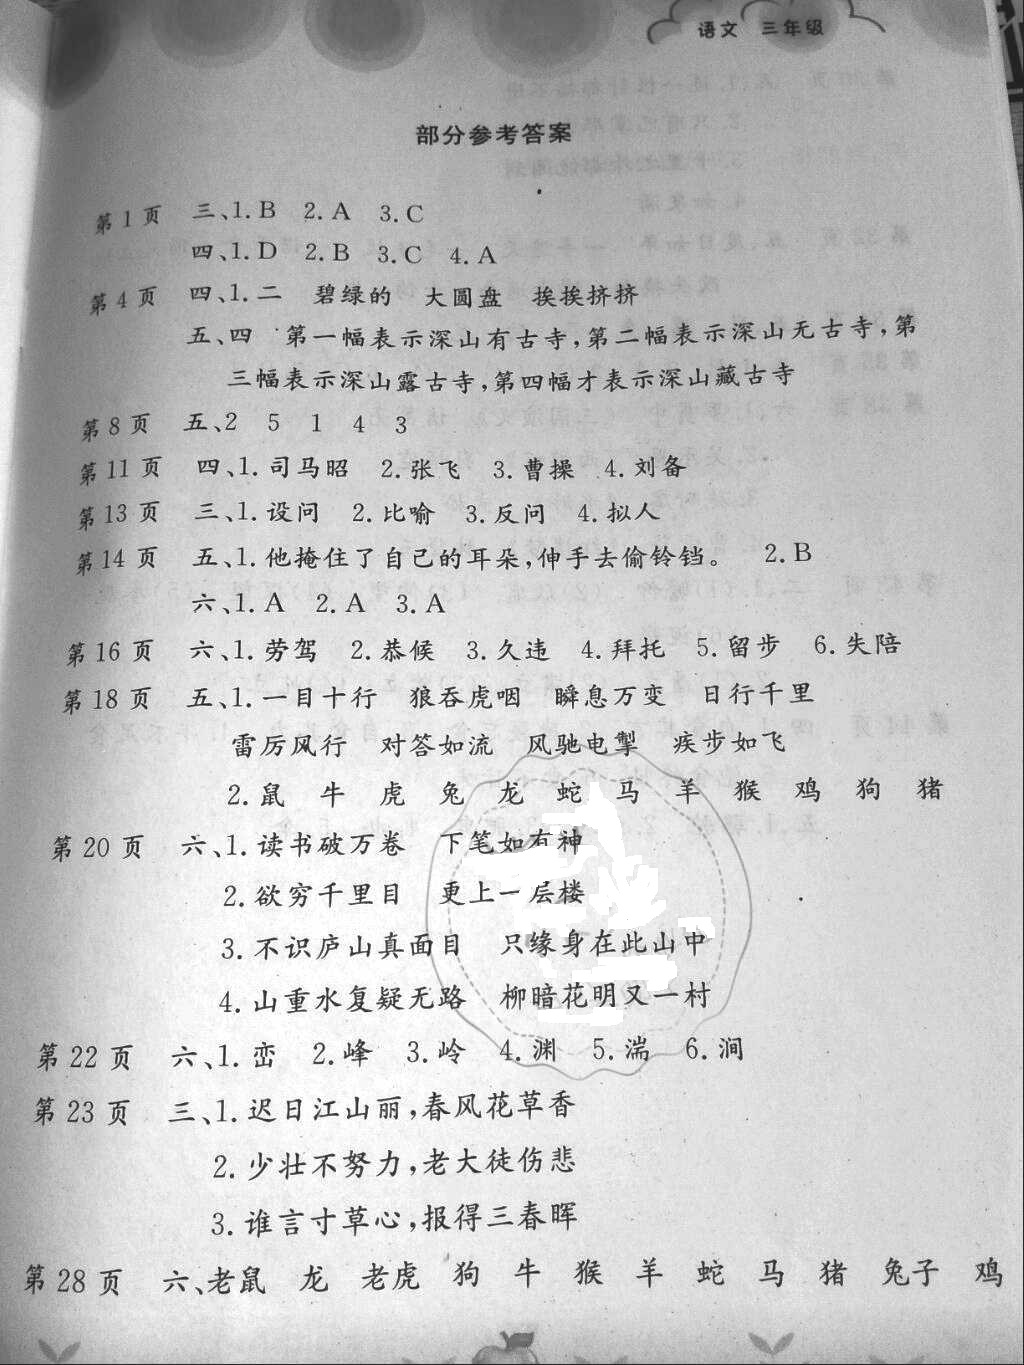 语文 三年级
部分参考答案
第1页 三、1.B 2.A 3.C
四、1.D 2.B 3.C 4.A
第4页 四、1.二 碧绿的 大圆盘 挨挨挤挤
五、四 第一幅表示深山有古寺,第二幅表示深山无古寺,第
三幅表示深山露古寺,第四幅才表示深山藏古寺
第8页 五、2 5 1 4 3
第11页 四、1.司马昭 2.张飞 3.曹操 4.刘备
第13页 三、1.设问 2.比喻 3.反问 4.拟人
第14页 五、1.他掩住了自己的耳朵,伸手去偷铃铛。 2.B
六、1.A 2.A 3.A
第16页 六、1.劳驾 2.恭候 3.久违 4.拜托 5.留步 6.失陪
第18页 五、1.一目十行 狼吞虎咽 瞬息万变 日行千里
雷厉风行 对答如流 风驰电掣 疾步如飞
2.鼠 牛 虎 兔 龙 蛇 马 羊 猴 鸡 狗 猪
第20页 六、1.读书破万卷 下笔如有神
2.欲穷千里目 更上一层楼
3.不识庐山真面目 只缘身在此山中
4.山重水复疑无路 柳暗花明又一村
第22页 六、1.峦 2.峰 3.岭 4.渊 5.湍 6.涧
第23页 三、1.迟日江山丽,春风花草香
2.少壮不努力,老大徒伤悲
3.谁言寸草心,报得三春晖
第28页 六、老鼠 龙 老虎 狗 牛 猴 羊 蛇 马 猪 兔子 鸡